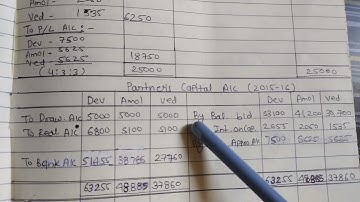 Amol - 
Ved - 1535 6250
To P/L A/c :
Dev - 7500
Amol - 5625
Ved - 5625 18750
(4:3:3) 25000 25000
Partners Capital A/c (2015-16)
Dev Amol Ved Dev Amol Ved
To Draw. A/c 5000 5000 5000 By Bal. b/d 53100 41200
To Real. A/c 6800 5100 5100 Int. on Cap 2655 2060 1535
A/c 5625 5625
To Bank A/c 38785 27760
63255 48885 37860 63255 48885 37860